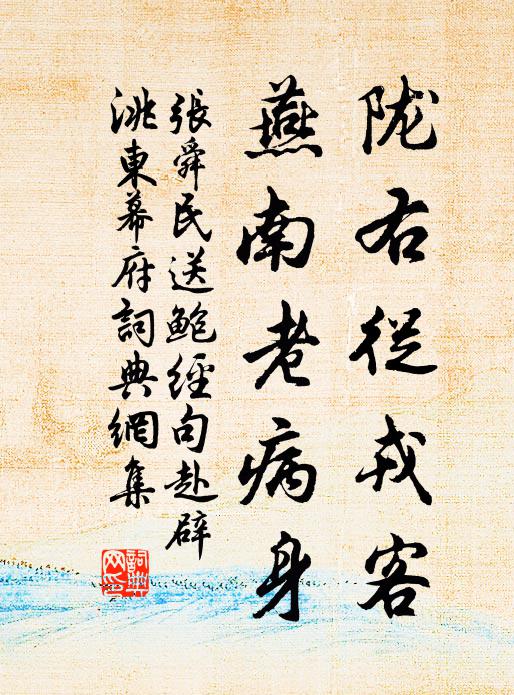 陇右從戎客
燕南老病身
張舜民送鲍經句赴辟
洮東幕府詞典網集